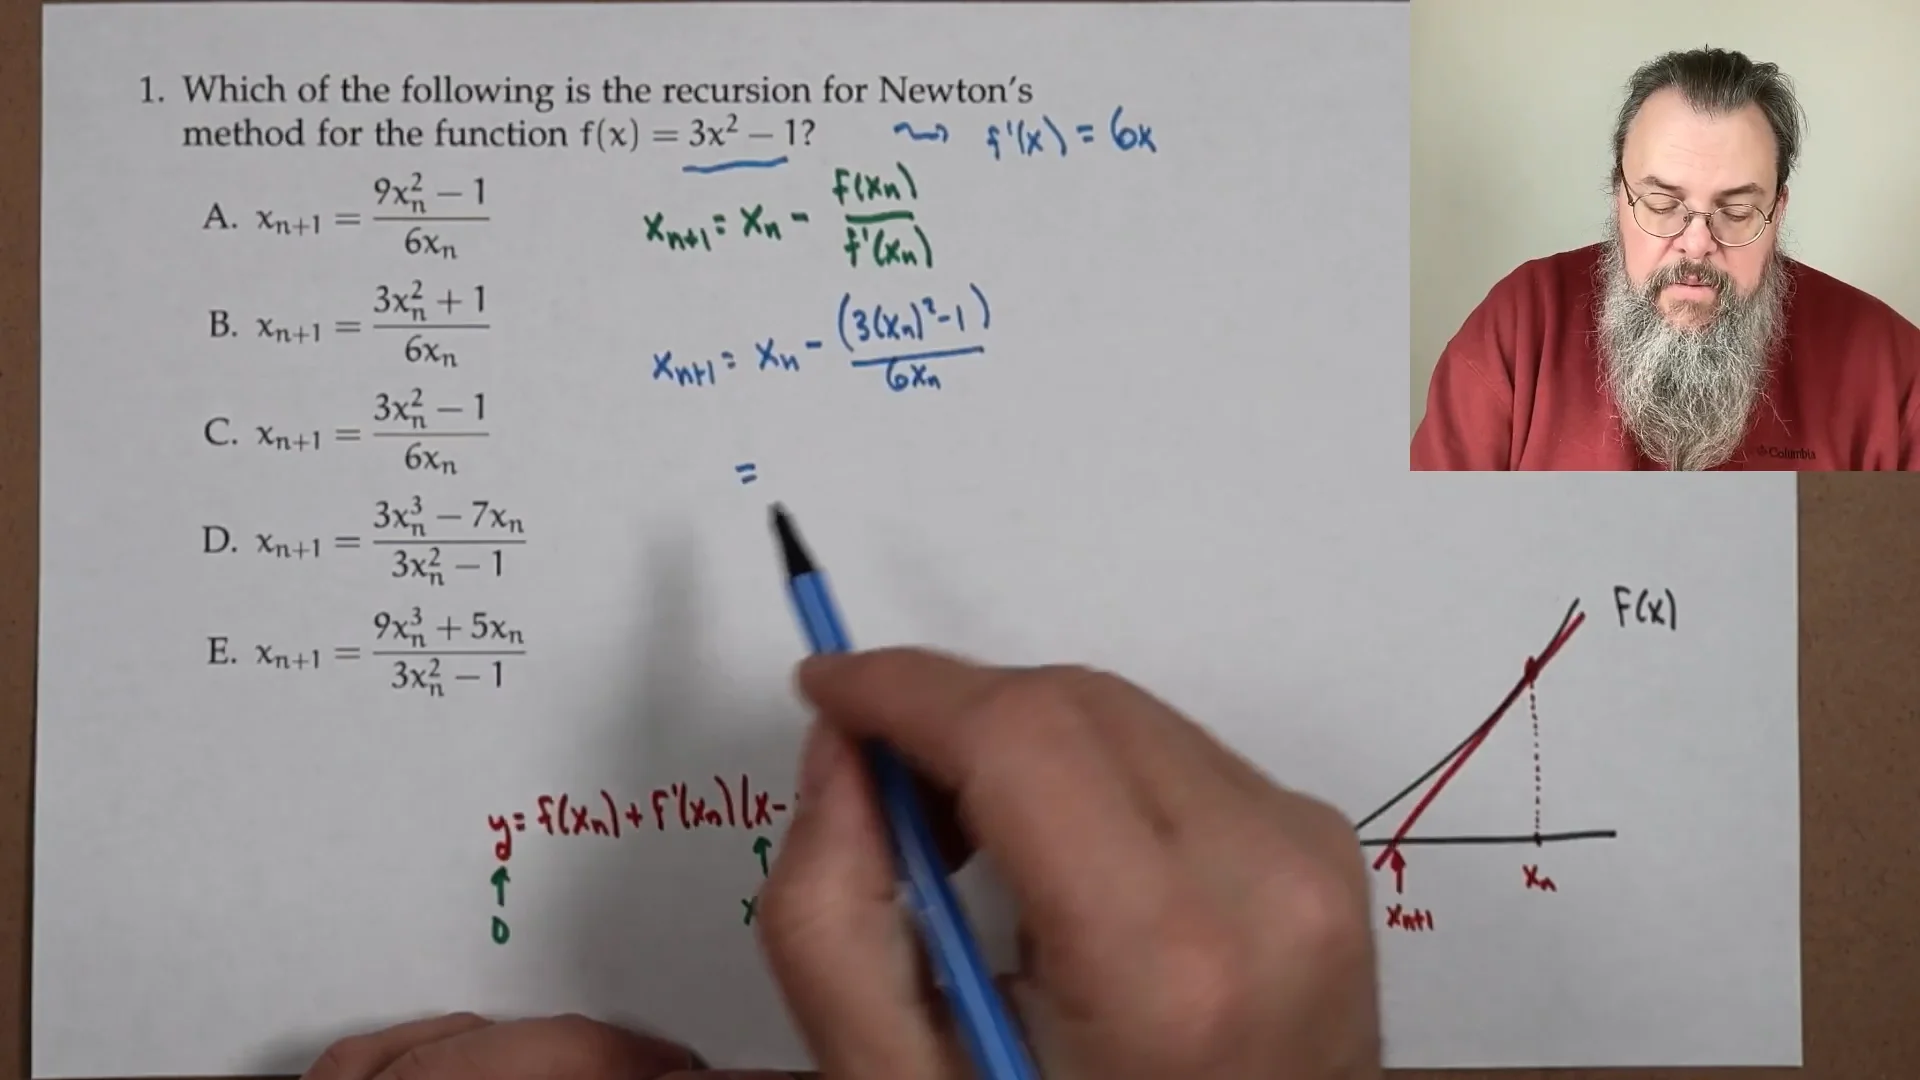 1. Which of the following is the recursion for Newton's
method for the function f(x) = 3x² − 1? ⇝ f'(x) = 6x
A. xₙ₊₁ = (9xₙ² − 1)/(6xₙ)
B. xₙ₊₁ = (3xₙ² + 1)/(6xₙ)
C. xₙ₊₁ = (3xₙ² − 1)/(6xₙ)
D. xₙ₊₁ = (3xₙ³ − 7xₙ)/(3xₙ² − 1)
E. xₙ₊₁ = (9xₙ³ + 5xₙ)/(3xₙ² − 1)
xₙ₊₁ = xₙ − f(xₙ)/f'(xₙ)
xₙ₊₁ = xₙ − (3(xₙ)² − 1)/6xₙ
=
y = f(xₙ) + f'(xₙ)(x −
↑ ↑
0
F(x)
xₙ
xₙ₊₁
Columbia